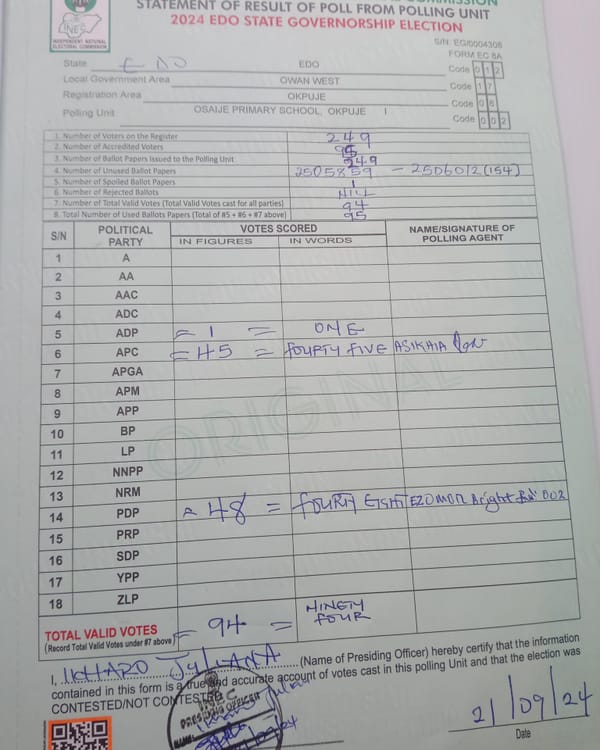 STATEMENT OF RESULT OF POLL FROM POLLING UNIT
2024 EDO STATE GOVERNORSHIP ELECTION
INEC
INDEPENDENT NATIONAL ELECTORAL COMMISSION
S/N: EG/0004308
FORM EC 8A
State EDO EDO Code 0 1 2
Local Government Area OWAN WEST Code 1 7
Registration Area OKPUJE Code 0 8
Polling Unit OSAIJE PRIMARY SCHOOL, OKPUJE I Code 0 0 2
1. Number of Voters on the Register 249
2. Number of Accredited Voters 95
3. Number of Ballot Papers Issued to the Polling Unit 249
4. Number of Unused Ballot Papers 2505859 - 2506012 (154)
5. Number of Spoiled Ballot Papers 1
6. Number of Rejected Ballots NILL
7. Number of Total Valid Votes (Total Valid Votes cast for all parties) 94
8. Total Number of Used Ballots Papers (Total of #5 + #6 + #7 above) 95
S/N POLITICAL PARTY VOTES SCORED NAME/SIGNATURE OF POLLING AGENT
IN FIGURES IN WORDS
1 A
2 AA
3 AAC
4 ADC
5 ADP = 1 = ONE
6 APC = 45 = FOURTY FIVE ASIKHIA
7 APGA
8 APM
9 APP
10 BP
11 LP
12 NNPP
13 NRM
14 PDP = 48 = FOURTY EIGHT 002
15 PRP
16 SDP
17 YPP
18 ZLP
ORIGINAL
TOTAL VALID VOTES = 94 = NINETY FOUR
(Record Total Valid Votes under #7 above)
I, IKHARO JULIANA (Name of Presiding Officer) hereby certify that the information
contained in this form is a true and accurate account of votes cast in this polling Unit and that the election was
CONTESTED/NOT CONTESTED
INEC
PRESIDING OFFICER
NAME:
21/09/24
Date